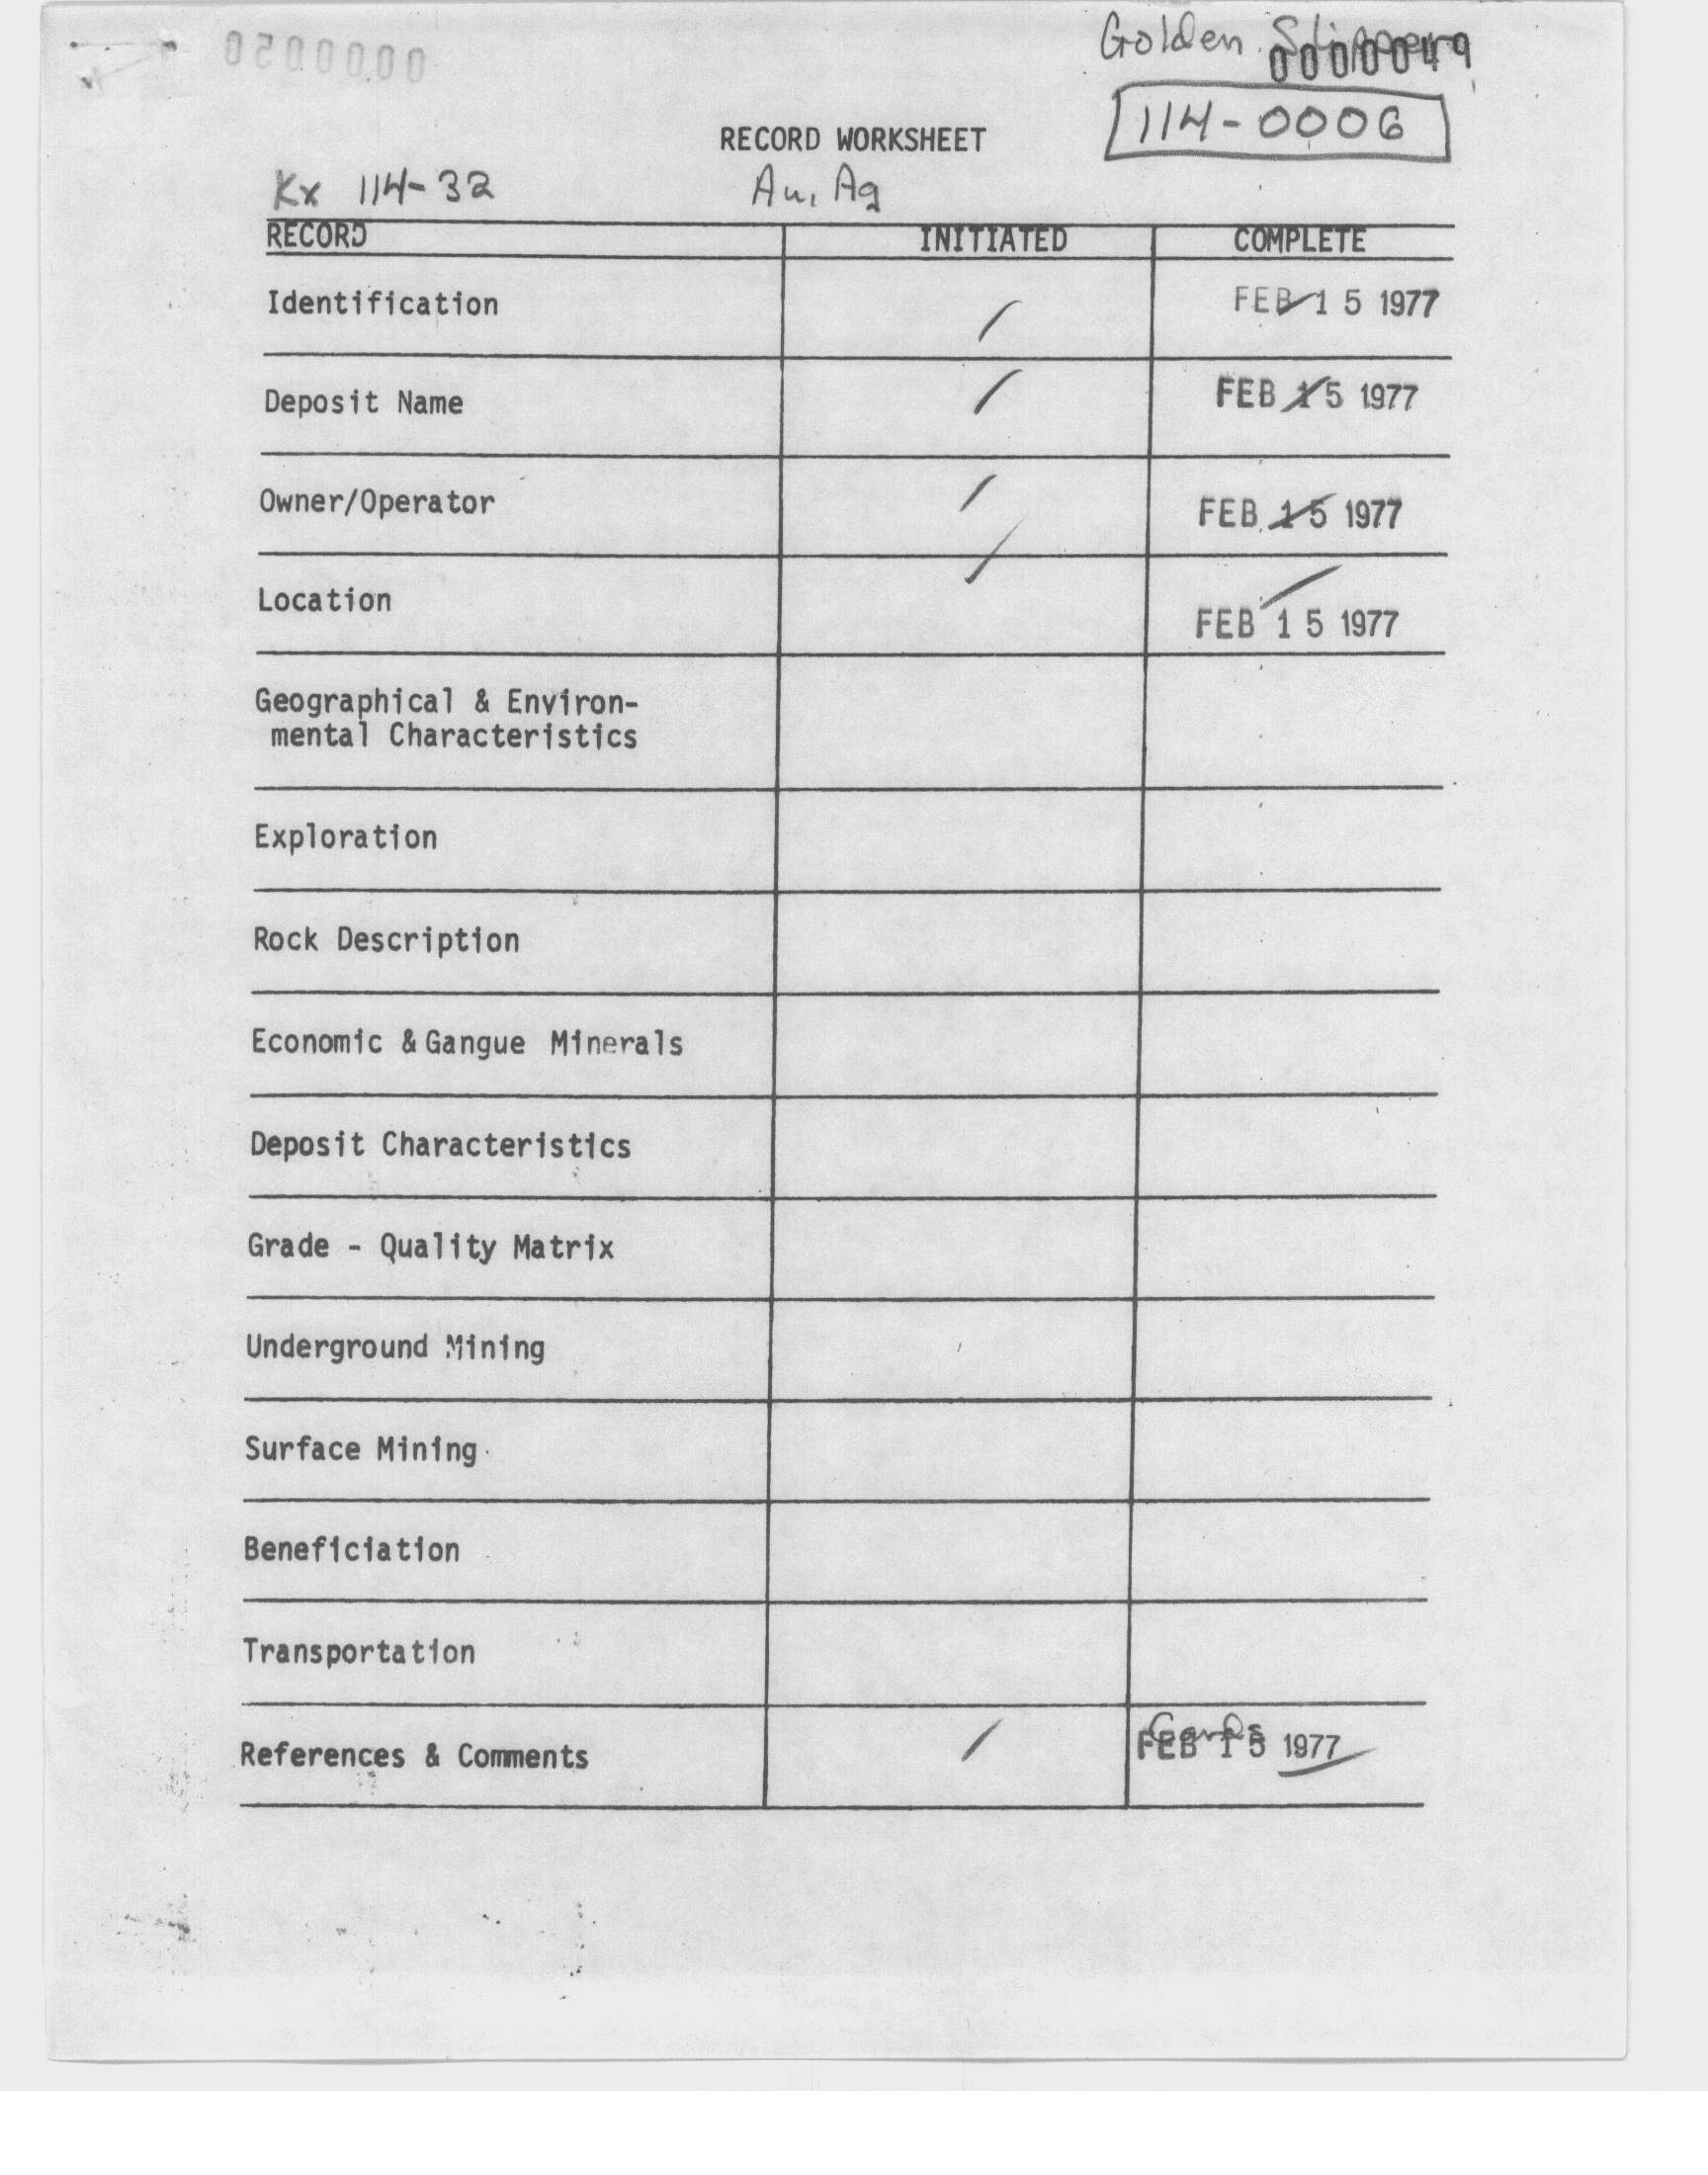 0000050
Golden Slipper
0000049
114-0006
RECORD WORKSHEET
Kx 114-32 Au, Ag
RECORD INITIATED COMPLETE
Identification FEB 15 1977
Deposit Name FEB 15 1977
Owner/Operator FEB 15 1977
Location FEB 15 1977
Geographical & Environ-
mental Characteristics
Exploration
Rock Description
Economic & Gangue Minerals
Deposit Characteristics
Grade - Quality Matrix
Underground Mining
Surface Mining
Beneficiation
Transportation
Cards
References & Comments FEB 15 1977